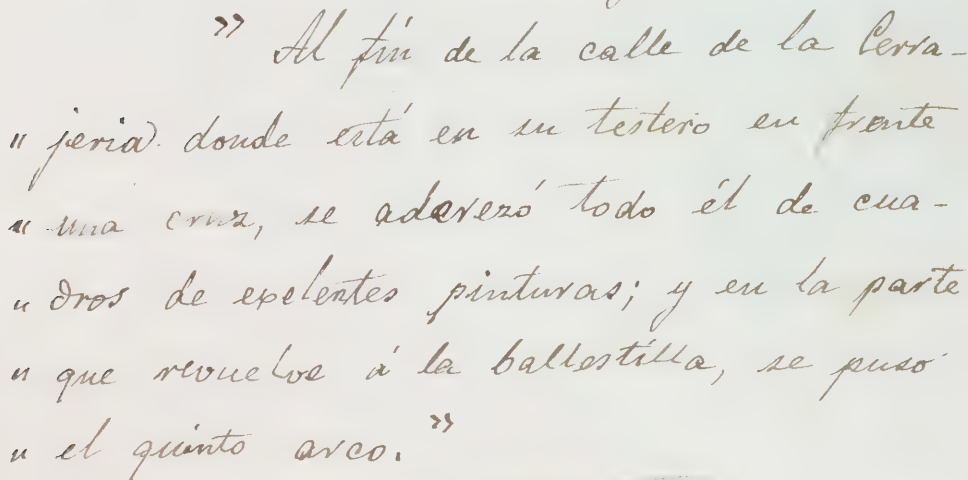 " Al fin de la calle de la Cerra-
" jeria donde está en su testero en frente
" una cruz, se aderezó todo él de cua-
" dros de exelentes pinturas; y en la parte
" que revuelve á la ballestilla, se puso
" el quinto arco."